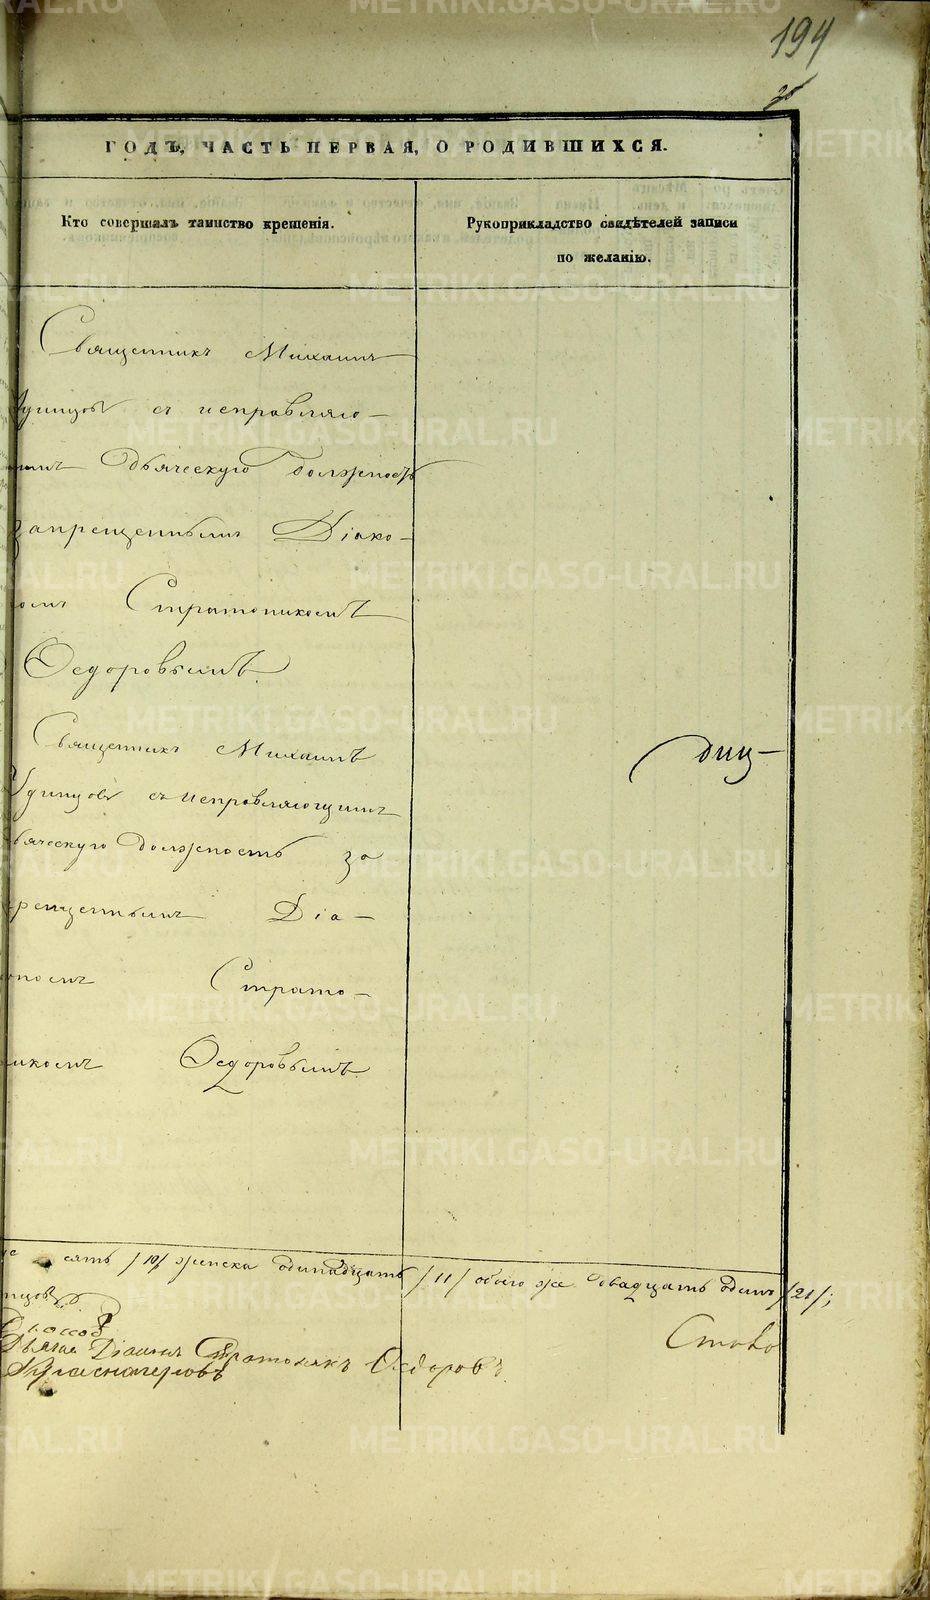 194
ГОДЪ, ЧАСТЬ ПЕРВАЯ, О РОДИВШИХСЯ.
Кто совершалъ таинство крещенія.
Рукоприкладство свидѣтелей записи
по желанію.
Священникъ Михаилъ
Удинцовъ съ исправляю-
щимъ дьяческую должность
запрещеннымъ Діако-
номъ Стратоникомъ
Ѳедоровымъ.
Священникъ Михаилъ
Удинцовъ съ исправляющимъ
дьяческую должность за
прещеннымъ Діа-
кономъ Страто-
никомъ Ѳедоровымъ.
сять /10/ женска одинадцать /11/ обоего же двадцать одинъ /21/;
Діаконъ Стратоникъ Ѳедоровъ.
METRIKI.GASO-URAL.RU